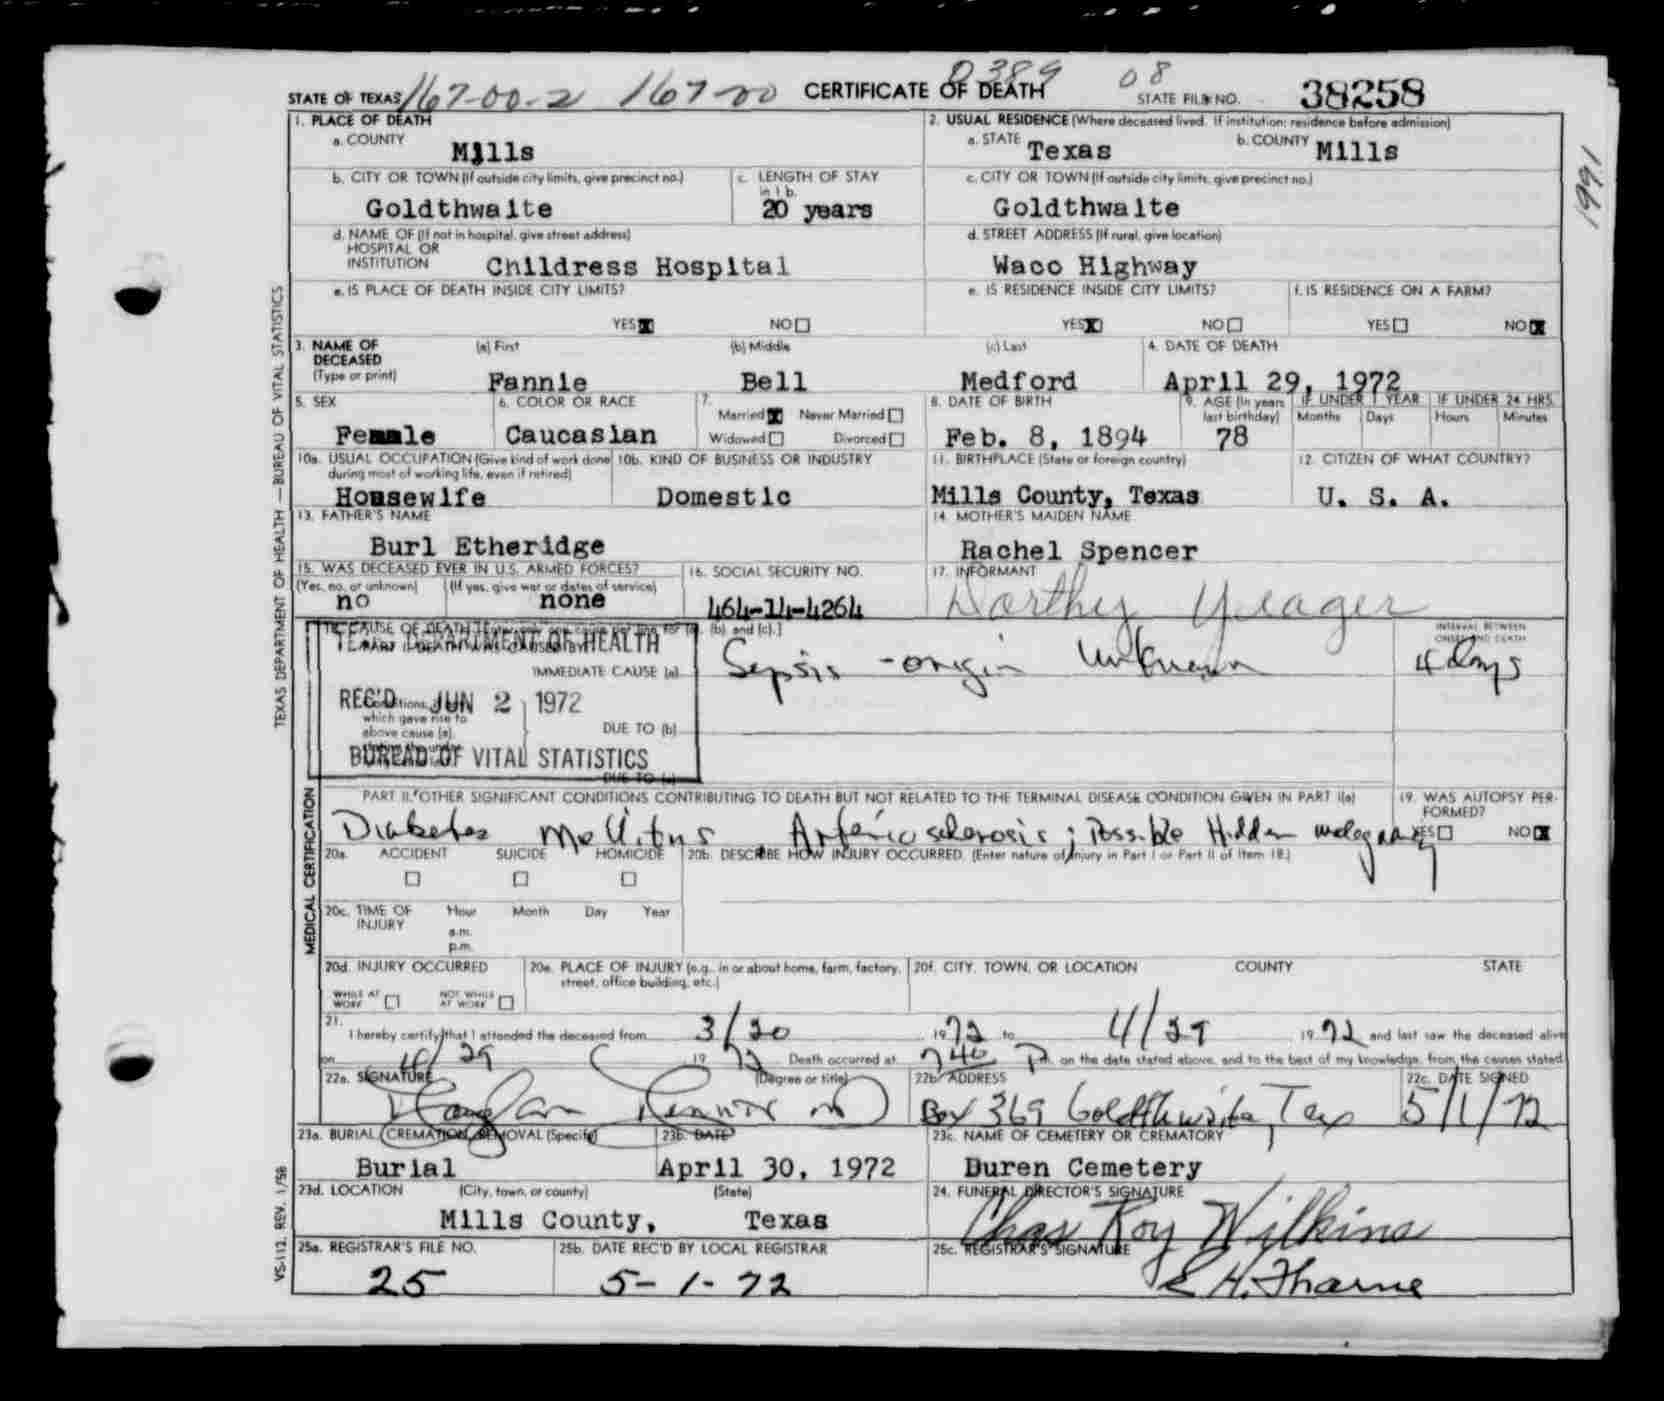 0389 08
STATE OF TEXAS 167-00-2 167-00 CERTIFICATE OF DEATH STATE FILE NO. 38258
1991
TEXAS DEPARTMENT OF HEALTH — BUREAU OF VITAL STATISTICS
1. PLACE OF DEATH 2. USUAL RESIDENCE (Where deceased lived. If institution: residence before admission)
a. COUNTY Mills a. STATE Texas b. COUNTY Mills
b. CITY OR TOWN (If outside city limits, give precinct no.) c. LENGTH OF STAY in 1 b. c. CITY OR TOWN (If outside city limits, give precinct no.)
Goldthwaite 20 years Goldthwaite
d. NAME OF (If not in hospital, give street address) d. STREET ADDRESS (If rural, give location)
HOSPITAL OR
INSTITUTION Childress Hospital Waco Highway
e. IS PLACE OF DEATH INSIDE CITY LIMITS? e. IS RESIDENCE INSIDE CITY LIMITS? f. IS RESIDENCE ON A FARM?
YES NO YES NO YES NO
3. NAME OF DECEASED (a) First (b) Middle (c) Last 4. DATE OF DEATH
(Type or print) Fannie Bell Medford April 29, 1972
5. SEX 6. COLOR OR RACE 7. Married Never Married 8. DATE OF BIRTH 9. AGE (In years last birthday) IF UNDER 1 YEAR IF UNDER 24 HRS.
Months Days Hours Minutes
Female Caucasian Widowed Divorced Feb. 8, 1894 78
10a. USUAL OCCUPATION (Give kind of work done during most of working life, even if retired) 10b. KIND OF BUSINESS OR INDUSTRY 11. BIRTHPLACE (State or foreign country) 12. CITIZEN OF WHAT COUNTRY?
Housewife Domestic Mills County, Texas U. S. A.
13. FATHER'S NAME 14. MOTHER'S MAIDEN NAME
Burl Etheridge Rachel Spencer
15. WAS DECEASED EVER IN U.S. ARMED FORCES? 16. SOCIAL SECURITY NO. 17. INFORMANT
(Yes, no, or unknown) (If yes, give war or dates of service)
no none 464-14-4264 Dorthy Yeager
18. CAUSE OF DEATH (b) and (c).] INTERVAL BETWEEN ONSET AND DEATH
TEXAS DEPARTMENT OF HEALTH
IMMEDIATE CAUSE (a) Sepsis - origin Unknown 4 days
REC'D JUN 2 1972
which gave rise to
above cause (a), DUE TO (b)
BUREAU OF VITAL STATISTICS
DUE TO (c)
MEDICAL CERTIFICATION
PART II. OTHER SIGNIFICANT CONDITIONS CONTRIBUTING TO DEATH BUT NOT RELATED TO THE TERMINAL DISEASE CONDITION GIVEN IN PART I(a) 19. WAS AUTOPSY PERFORMED?
Diabetes Mellitus Arteriosclerosis; Possible Hidden YES NO
20a. ACCIDENT SUICIDE HOMICIDE 20b. DESCRIBE HOW INJURY OCCURRED. (Enter nature of injury in Part I or Part II of Item 18.)
20c. TIME OF INJURY Hour Month Day Year
a.m.
p.m.
20d. INJURY OCCURRED 20e. PLACE OF INJURY (e.g., in or about home, farm, factory, street, office building, etc.) 20f. CITY, TOWN, OR LOCATION COUNTY STATE
WHILE AT WORK NOT WHILE AT WORK
21.
I hereby certify that I attended the deceased from 3/20 1972 to 4/29 1972 and last saw the deceased alive
on 4/29 1972 Death occurred at 740 P m. on the date stated above, and to the best of my knowledge, from the causes stated.
22a. SIGNATURE (Degree or title) 22b. ADDRESS 22c. DATE SIGNED
MD Box 369 Goldthwaite, Tex 5/1/72
23a. BURIAL, CREMATION, REMOVAL (Specify) 23b. DATE 23c. NAME OF CEMETERY OR CREMATORY
Burial April 30, 1972 Duren Cemetery
23d. LOCATION (City, town, or county) (State) 24. FUNERAL DIRECTOR'S SIGNATURE
Mills County, Texas Chas Roy Wilkins
25a. REGISTRAR'S FILE NO. 25b. DATE REC'D BY LOCAL REGISTRAR 25c. REGISTRAR'S SIGNATURE
25 5-1-72 H. Tharne
VS-112, REV. 1/58